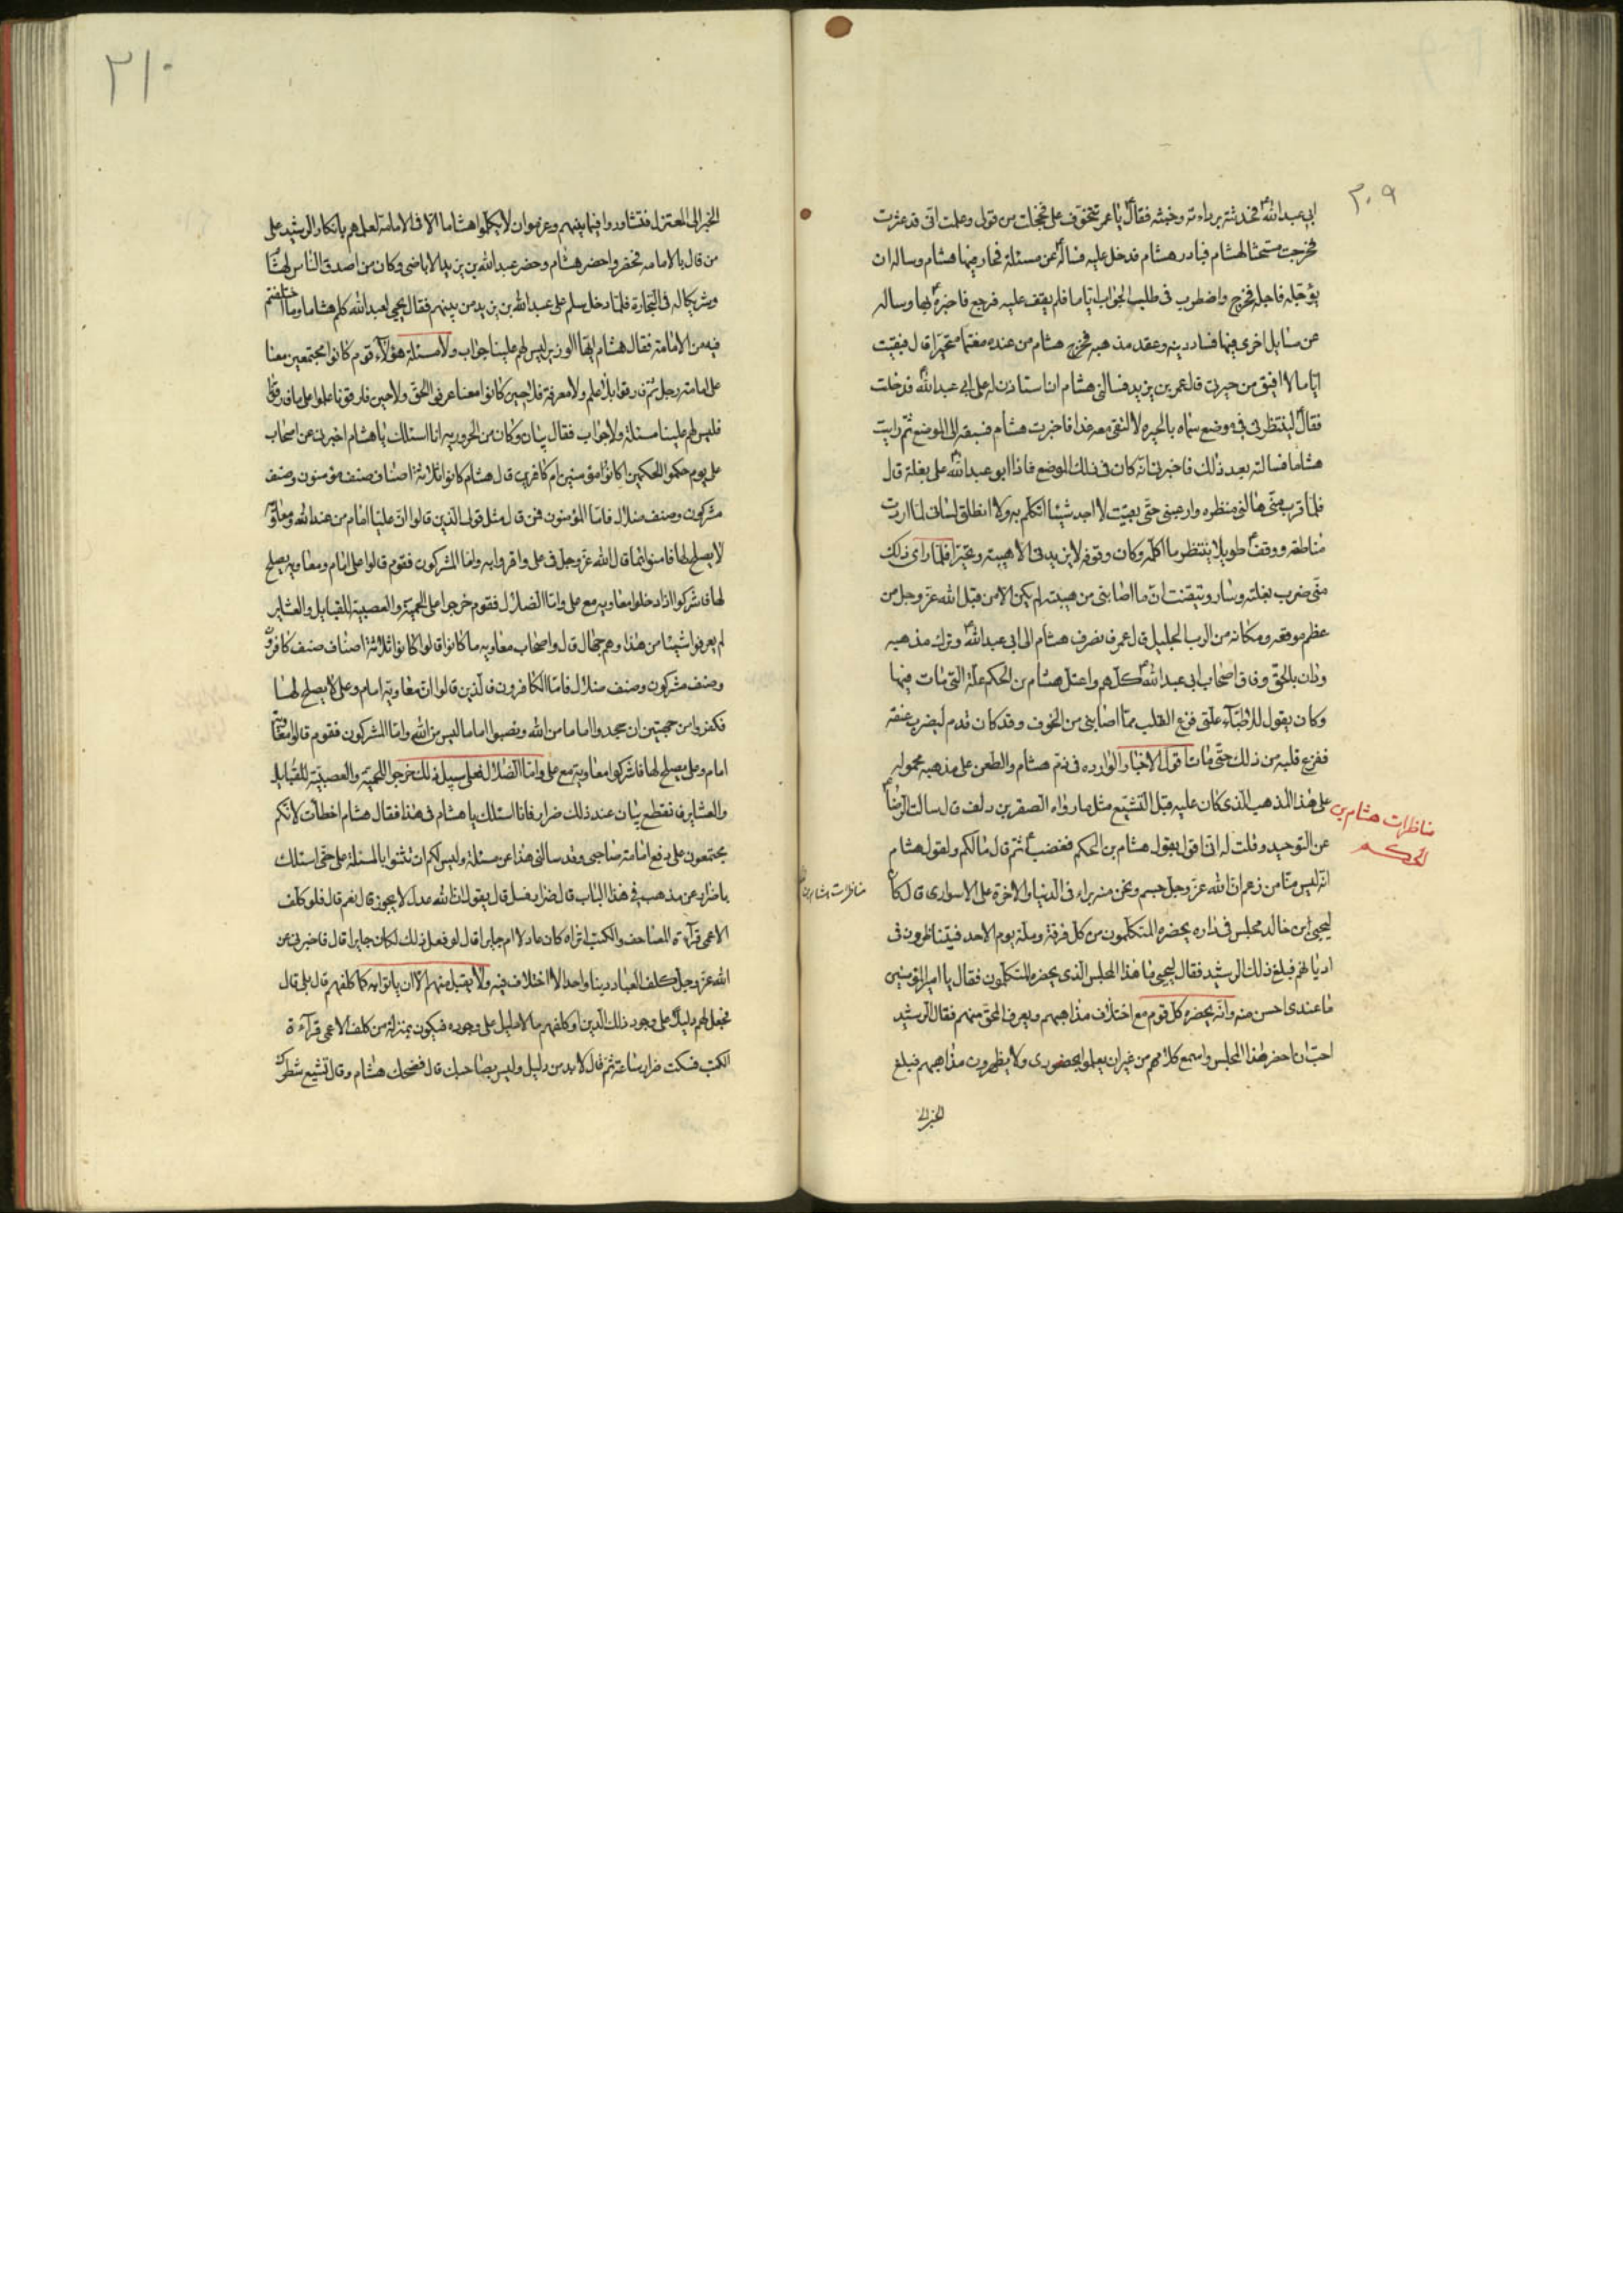 ٢٠٩
ابي عبد الله ع فحدثته برداءته وخبثه فقال ع يا عمر تتخوف على فخجلت من قولى وعلمت انى قد عثرت
فخرجت مستحثا لهشام فبادر هشام فدخل عليه فساله ع عن مسئلة فحار فيها هشام وساله ان
يؤجله فاجله فخرج واضطرب فى طلب الجواب اياما فلم يقف عليه فرجع فاخبره ع بها وساله
عن مسايل اخرى فيها فساد دينه وعقد مذهبه فخرج هشام من عنده مغتما متحيرا قال فبقيت
اياما لا افيق من حيرتى قال عمر بن يزيد فسالنى هشام ان استاذن له على ابي عبد الله ع فدخلت
فقال ع لينتظرنى فى موضع سماه بالحيره لالتقى معه غدا فاخبرت هشام فسبقه الى الموضع ثم رايت
هشاما فسالته بعد ذلك فاخبرنى انه كان فى ذلك الموضع فاذا ابو عبد الله ع على بغلة قال
فلما قرب منى هالنى منظره وارعبنى حتى بقيت لا اجد شيئا اتكلم به ولا انطلق لسانى لما اردت
مناطقه ووقف ع طويلا ينتظر ما اكلمه وكان وقوفه لا يزيدنى الا هيبة وتحيرا فلما راى ذلك
منى ضرب بغلته وسار وتيقنت ان ما اصابنى من هيبته لم يكن الا من قبل الله عز وجل من
عظم موقعه ومكانه من الرب الجليل قال عمر فانصرف هشام الى ابى عبد الله ع وترك مذهبه
ودان بالحق وفاق اصحاب ابى عبد الله ع كلهم واعتل هشام بن الحكم علة التى مات فيها
وكان يقول للاطباء علتى فزع القلب مما اصابنى من الخوف وقد كان قدم ليضرب عنقه
ففزع قلبه من ذلك حتى مات اقول الاخبار الوارده فى ذم هشام والطعن على مذهبه محموله
على هذا المذهب الذى كان عليه قبل التشيع مثل ما رواه الصقر بن دلف قال سالت الرضا ع
عن التوحيد وقلت له انى اقول بقول هشام بن الحكم فغضب ع ثم قال ما لكم ولقول هشام
انه ليس منا من زعم ان الله عز وجل جسم ونحن منه براء فى الدنيا والاخرة على الاسوارى قال كان
ليحيى ابن خالد مجلس فى داره يحضره المتكلمون من كل فرقة وملة يوم الاحد فيتناظرون فى
اديانهم فبلغ ذلك الرشيد فقال ليحيى ما هذا المجلس الذى يحضره المتكلمون فقال يا امير المؤمنين
ما عندى احسن منه وانه يحضره كل قوم مع اختلاف مذاهبهم ويعرف المحق منهم فقال الرشيد
احب ان احضر هذا المجلس واسمع كلامهم من غير ان يعلموا بحضورى ولا يظهرون مذاهبهم فبلغ
الخبر الى
مناظرات هشام بن
الحكم
مناظرات هشام بن
٢١٠
الخبر الى المعتزله فتشاوروا فيما بينهم وعزموا ان لا يكلموا هشاما الا فى الامامة لعلمهم بانكار الرشيد على
من قال بالامامه فحضروا حضر هشام وحضر عبد الله بن يزيد الاباضى وكان من اصدق الناس لهشام
وشريكا له فى التجارة فلما دخل سلم على عبد الله بن يزيد من بينهم فقال يحيى لعبد الله كلم هشاما وما اختلفتم
فيه من الامامة فقال هشام ايها الوزير ليس لهم علينا جواب ولا مسئلة هؤلاء قوم كانوا مجتمعين معنا
على امامة رجل ثم فارقوا بلا علم ولا معرفة فلا حين كانوا معنا عرفوا الحق ولا حين فارقونا علموا على ما فارقونا
فليس لهم علينا مسئلة ولا جواب فقال بيان وكان من الحروريه انا اسئلك يا هشام اخبرنى عن اصحاب
على يوم حكموا الحكمين اكانوا مؤمنين ام كافرين قال هشام كانوا ثلاثة اصناف صنف مؤمنون وصنف
مشركون وصنف ضلال فاما المؤمنون فمن قال مثل قولى الذين قالوا ان عليا امام من عند الله ومعاوية
لا يصلح لها فامنوا بما قال الله عز وجل فى على واقروا به واما المشركون فقوم قالوا على امام ومعاويه يصلح
لها فاشركوا اذ ادخلوا معاويه مع على واما الضلال فقوم خرجوا على الحمية والعصبية للقبايل والعشاير
لم يعرفوا شيئا من هذا وهم جهال قال واصحاب معاويه ما كانوا قالوا كانوا ثلاثة اصناف صنف كافرون
وصنف مشركون وصنف ضلال فاما الكافرون فالذين قالوا ان معاوية امام وعلى لا يصلح لها
فكفروا من جهتين ان جحدوا اماما من الله ونصبوا اماما ليس من الله واما المشركون فقوم قالوا معاوية
امام وعلى يصلح لها فاشركوا معاوية مع على واما الضلال فعلى سبيل ذلك خرجوا للحمية والعصبية للقبايل
والعشاير فانقطع بيان عند ذلك ضرار فانا اسئلك يا هشام فى هذا فقال هشام اخطات لانكم
مجتمعون على دفع امامة صاحبى وقد سالنى هذا عن مسئلة وليس لكم ان تثنوا بالمسئلة على حتى اسئلك
يا ضرار عن مذهبك فى هذا الباب قال ضرار فسل قال يقول ان الله عدل لا يجوز قال نعم قال فلو كلف
الاعمى قرآءة المصاحف والكتب اتراه كان عادلا ام جايرا قال لو فعل ذلك لكان جايرا قال فاخبرنى عن
الله عز وجل كلف العباد دينا واحدا لا اختلاف فيه ولا يقبل منهم الا ان ياتوا به كما كلفهم قال بلى قال
فجعل لهم دليلا على وجود ذلك الدين او كلفهم ما لا دليل على وجوده فيكون بمنزلة من كلف الاعمى قرآءة
الكتب فسكت ضرار ساعة ثم قال لا بد من دليل وليس بصاحبك قال فضحك هشام وقال تشيع شطرك